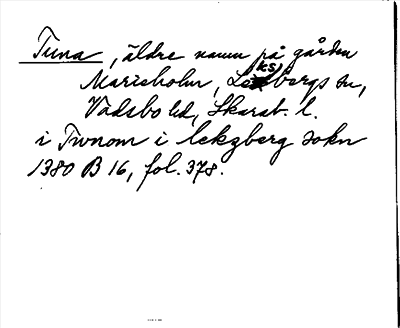 Tuna, äldre namn på gården
Marieholm, Leksbergs sn,
Vadsbo hd, Skarab. l.
i Twnom i lekzberg sokn
1380 B 16, fol. 378.